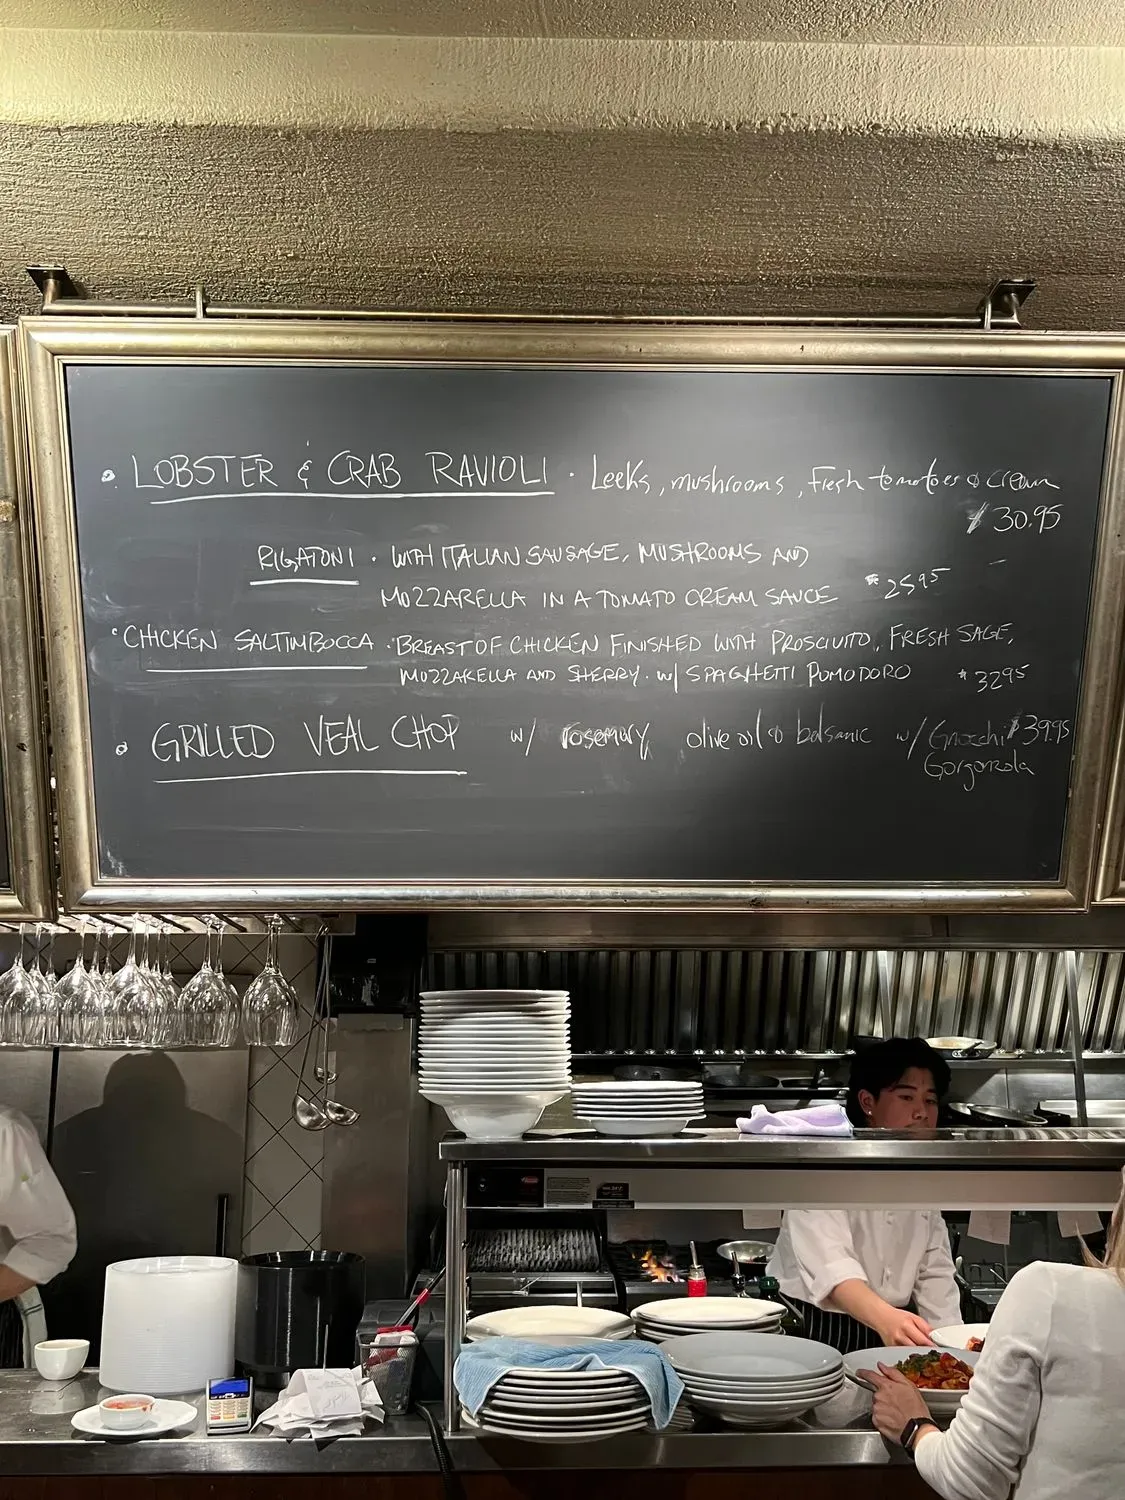 • LOBSTER & CRAB RAVIOLI · Leeks, mushrooms, Fresh tomatoes & cream
$ 30.95
RIGATONI · WITH ITALIAN SAUSAGE, MUSHROOMS AND
MOZZARELLA IN A TOMATO CREAM SAUCE $25.95
• CHICKEN SALTIMBOCCA · BREAST OF CHICKEN FINISHED WITH PROSCIUTTO, FRESH SAGE,
MOZZARELLA AND SHERRY. W/ SPAGHETTI POMODORO $32.95
• GRILLED VEAL CHOP w/ rosemary olive oil & balsamic w/ Gnocchi $39.95
Gorgonzola